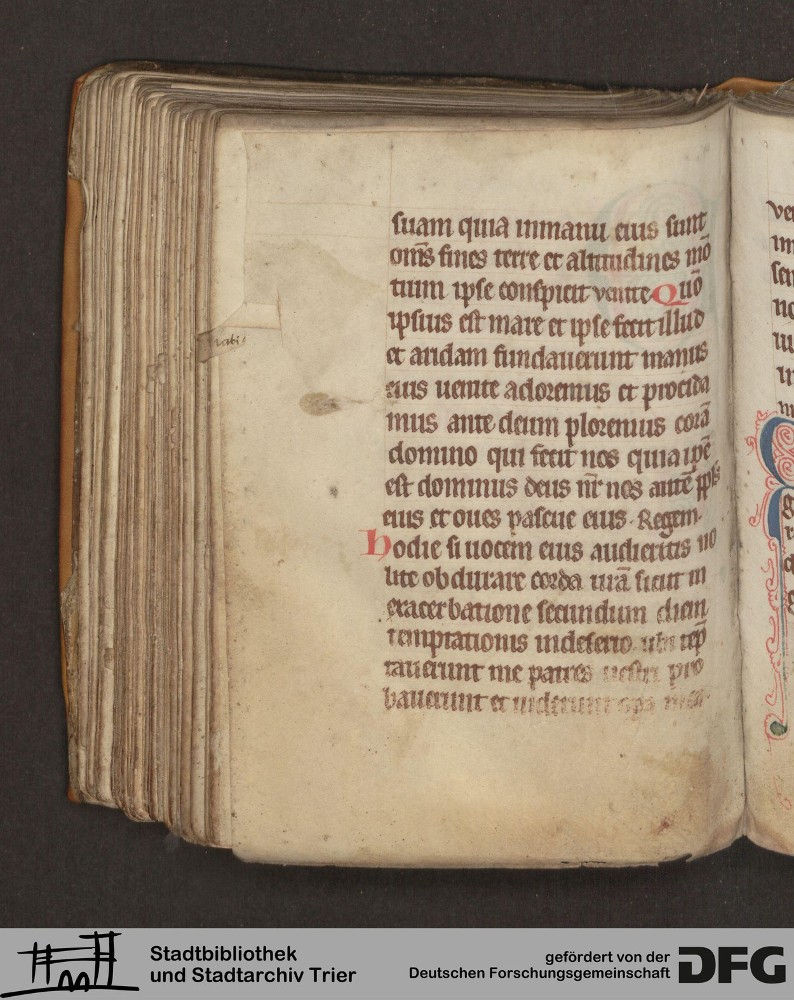 suam quia inmanu eius sunt
om̄s fines terre et altitudines mō
tium ipse conspicit venite Quō
ipsius est mare et ipse fecit illud
et aridam fundauerunt manus
eius uenite adoremus et procida
mus ante deum ploremus corā
domino qui fecit nos quia ip̄e
est dominus deus nr̄ nos autē ppls
eius et oues pascue eius. Regem.
hodie si uocem eius audieritis no
lite obdurare corda urā sicut in
exacerbatione secundum diem
temptationis indeserto ubi tēp
tauerunt me patres uestri pro
bauerunt et uiderunt opa mea.
Stadtbibliothek
und Stadtarchiv Trier
gefördert von der
Deutschen Forschungsgemeinschaft
DFG